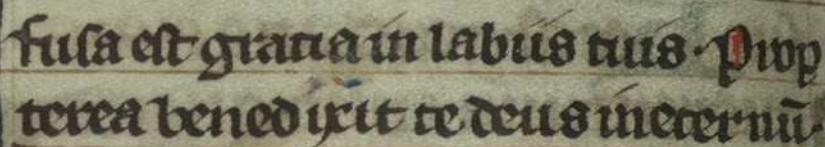 fusa est gratia in labiis tuis. Prop
terea benedixit te deus in eternū.